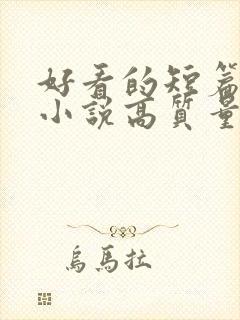 好看的短篇
小說高質量
烏馬拉